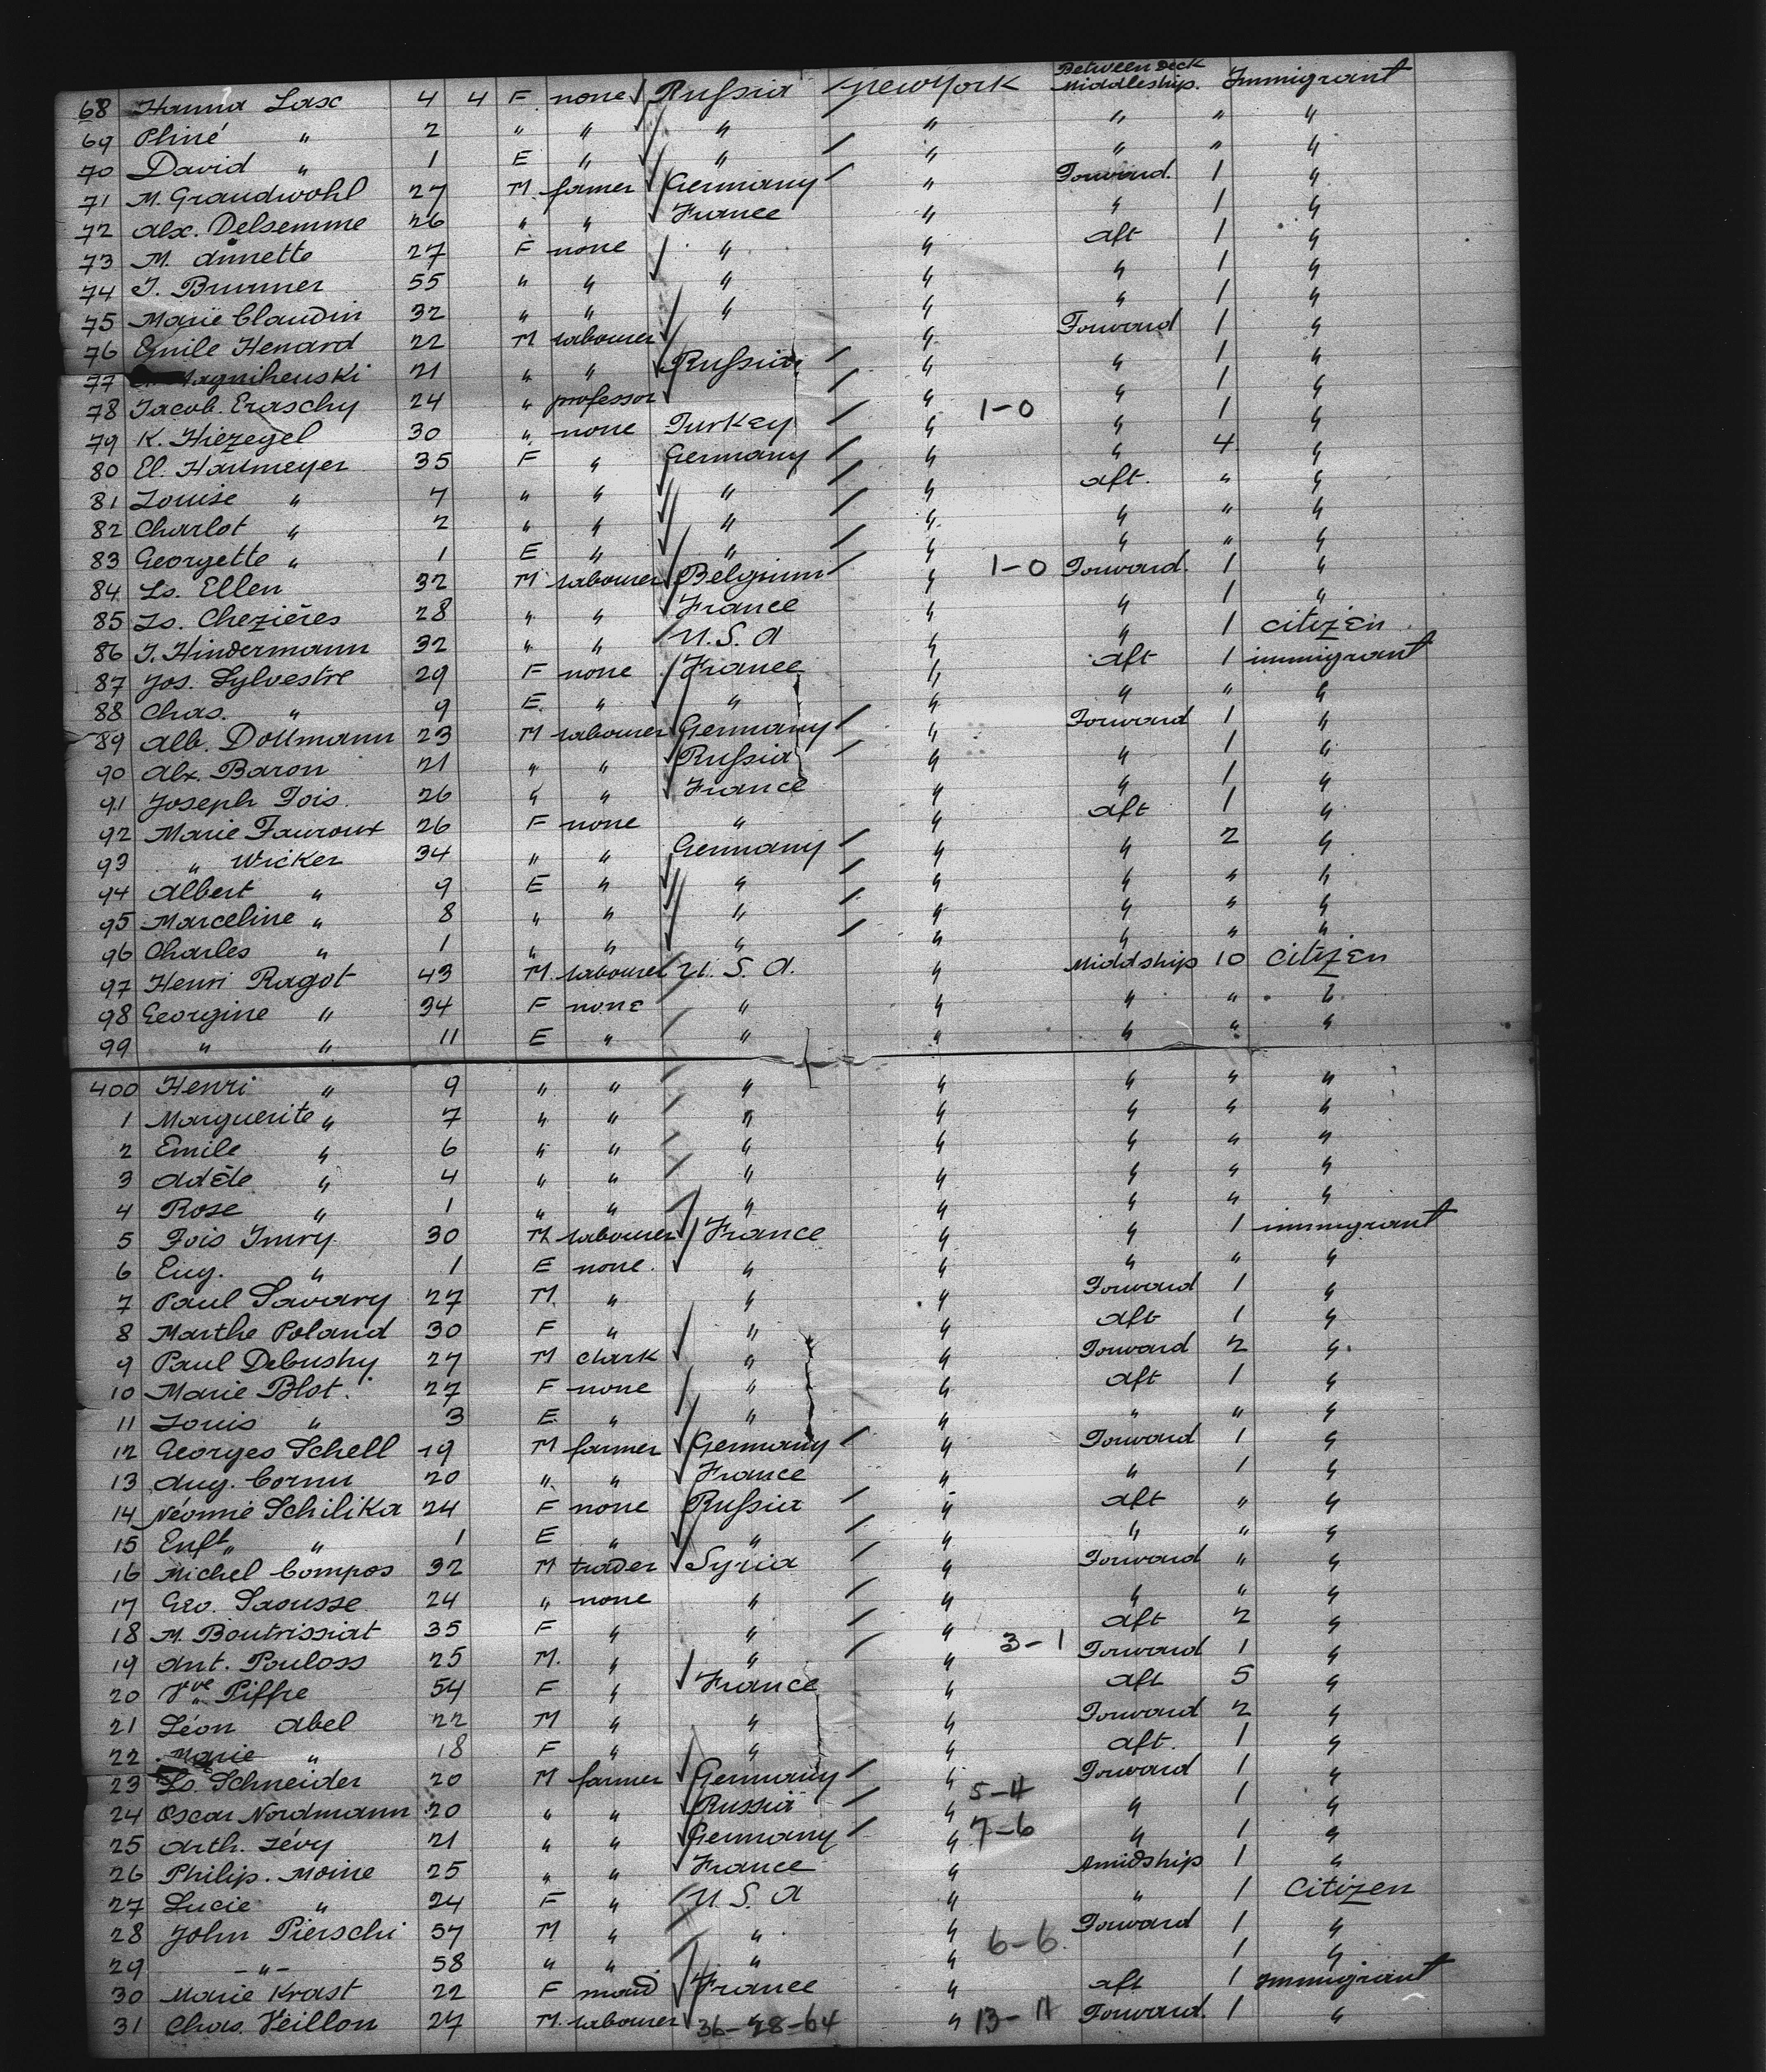 68 Hanna Lax 4 4 F none Russia New York Between Deck Middleship. Immigrant
69 Pliné " 2 " " " " " " "
70 David " 1 E " " " " " "
71 M. Graudwohl 27 M farmer Germany " Forward. 1 "
72 Alx. Delsemme 26 " " France " " 1 "
73 M. Annette 27 F none " " aft 1 "
74 J. Brunner 55 " " " " " 1 "
75 Marie Claudin 32 " " " " " 1 "
76 Emile Henard 22 M labourer " Forward 1 "
77 21 " " Russia " " 1 "
78 Jacob. Eraschy 24 " professor " " 1 "
79 K. Hiezegel 30 " none Turkey " 1-0 " 1 "
80 El. Hartmeyer 35 F " Germany " " 4 "
81 Louise " 4 " " " " aft. " "
82 Charlot " 2 " " " " " " "
83 Georgette " 1 E " " " " " "
84 Ls. Ellen 32 M labourer Belgium " 1-0 Forward. 1 "
85 Ls. Chezières 28 " " France " " 1 "
86 J. Hindermann 32 " " U.S.A " " 1 citizen
87 Jos. Sylvestre 29 F none France " aft 1 immigrant
88 Chas. " 9 E. " " " " " "
89 Alb. Dollmann 23 M labourer Germany " Forward 1 "
90 Alx. Baron 21 " " Russia " " 1 "
91 Joseph Fois. 26 " " France " " 1 "
92 Marie Fauroux 26 F none " " aft 1 "
93 " Wicker 34 " " Germany " " 2 "
94 Albert " 9 E " " " " " "
95 Marceline " 8 " " " " " " "
96 Charles " 1 " " " " " " "
97 Henri Ragot 43 M. labourer U.S.A. " Middship 10 citizen
98 Georgine " 34 F none " " " " "
99 " " 11 E " " " " " "
400 Henri " 9 " " " " " " "
1 Marguerite " 7 " " " " " " "
2 Emile " 6 " " " " " " "
3 Adèle " 4 " " " " " " "
4 Rose " 1 " " " " " " "
5 Fois Imry 30 M labourer France " " 1 immigrant
6 Eug. " 1 E none. " " " " "
7 Paul Savary 27 M. " " " Forward 1 "
8 Marthe Poland 30 F " " " aft 1 "
9 Paul Debushy 27 M clark " " Forward 2 "
10 Marie Blot. 27 F none " " aft 1 "
11 Louis " 3 E. " " " " " "
12 Georges Schell 19 M farmer Germany " Forward 1 "
13 Aug. Cornu 20 " " France " " 1 "
14 Néomie Schilika 24 F none Russia " aft " "
15 Enft " " 1 E " " " " " "
16 Michel Compos 32 M trader Syria " Forward " "
17 Geo. Saousse 24 " none " " " " "
18 M. Boutrissiat 35 F " " " aft 2 "
19 Ant. Pouloss 25 M. " " " 3-1 Forward 1 "
20 Vve Piffre 54 F " France " aft 5 "
21 Léon Abel 22 M " " " Forward 2 "
22 Marie " 18 F " " " aft. 1 "
23 Ls. Schneider 20 M farmer Germany " Forward 1 "
24 Oscar Nordmann 20 " " Russia " 5-4 " 1 "
25 Arth. Lévy 21 " " Germany " 7-6 " 1 "
26 Philip. Moine 25 " " France " Amidship 1 "
27 Lucie " 24 F " U.S.A " " 1 Citizen
28 John Pierschi 57 M " " " Forward 1 "
29 -"- 58 " " " " 6-6. 1 "
30 Marie Krast 22 F maid France " aft 1 Immigrant
31 Chas. Véillon 27 M. labourer " 36-28-64 " 13-11 Forward. 1 "